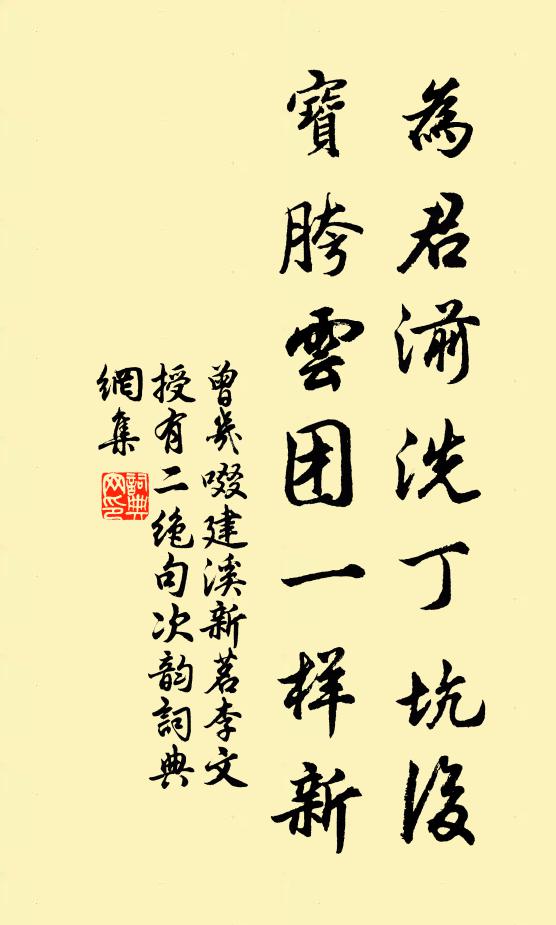 為君湔洗丁坑後
寶胯雲团一样新
曾幾啜建溪新茗李文
授有二绝句次韵詞典
網集
詞典
网印